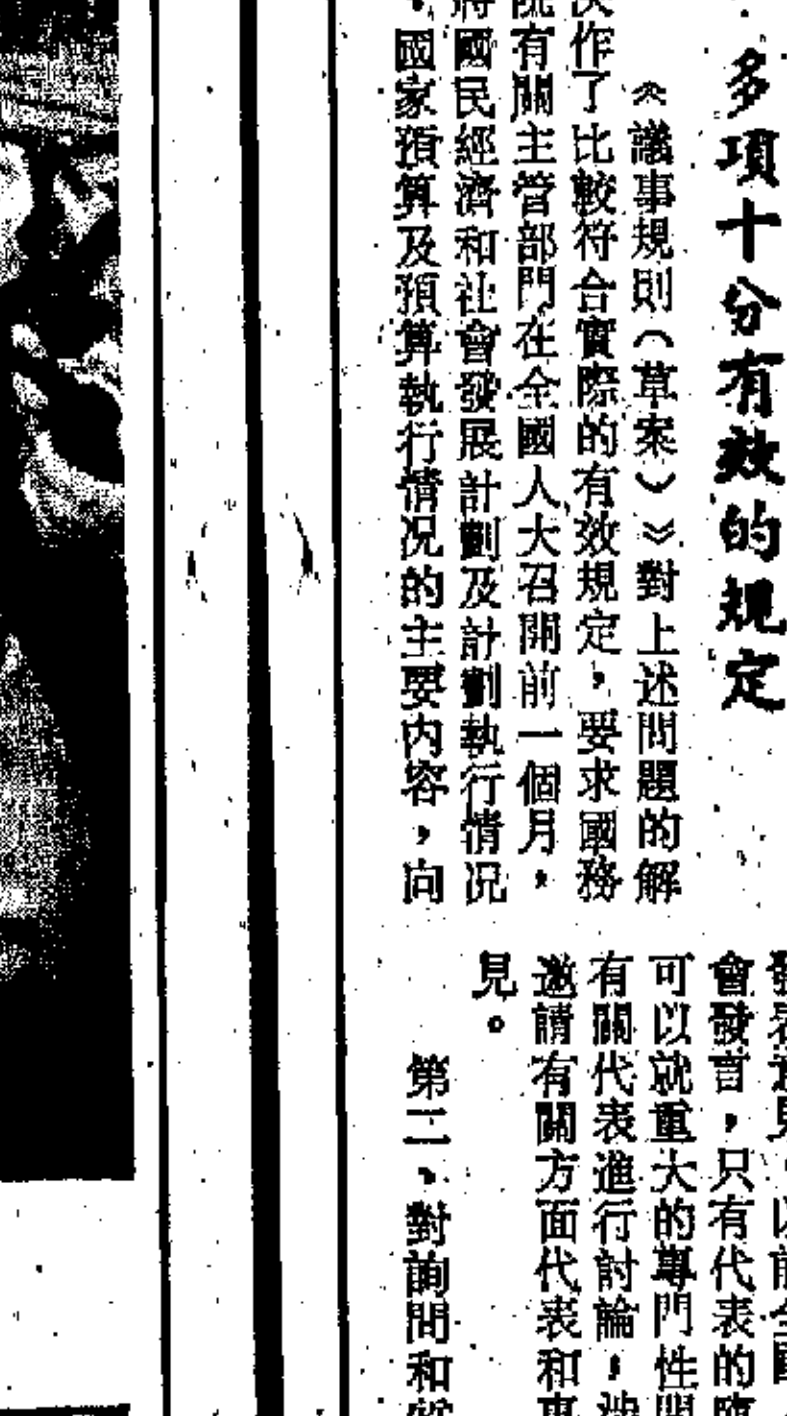 多項十分有效的規定
《議事規則（草案）》對上述問題的解
決作了比較符合實際的有效規定，要求國務
院有關主管部門在全國人大召開前一個月，
將國民經濟和社會發展計劃及計劃執行情况
，國家預算及預算執行情况的主要内容，向
會發言，只有代表的
可以就重大的專門性問
有關代表進行討論，涉
邀請有關方面代表和專
見。
第二，對詢問和質